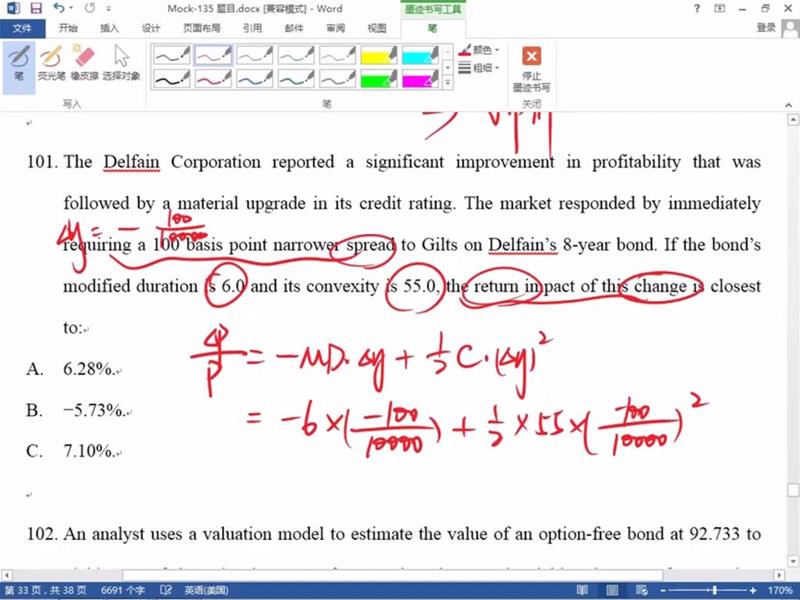 Mock-135 题目.docx [兼容模式] - Word
墨迹书写工具
文件 开始 插入 设计 页面布局 引用 邮件 审阅 视图 笔
登录
笔 荧光笔 橡皮擦 选择对象
颜色
粗细
停止
墨迹书写
写入 笔 关闭
101. The Delfain Corporation reported a significant improvement in profitability that was
followed by a material upgrade in its credit rating. The market responded by immediately
Δy = - 100/10000
requiring a 100 basis point narrower spread to Gilts on Delfain's 8-year bond. If the bond's
modified duration is 6.0 and its convexity is 55.0, the return impact of this change is closest
to:
ΔP/P = -MD·Δy + 1/2 C·(Δy)²
A. 6.28%.
B. −5.73%.
= -6×(-100/10000) + 1/2 ×55×(-100/10000)²
C. 7.10%.
102. An analyst uses a valuation model to estimate the value of an option-free bond at 92.733 to
第 33 页，共 38 页 6691 个字 英语(美国) 170%